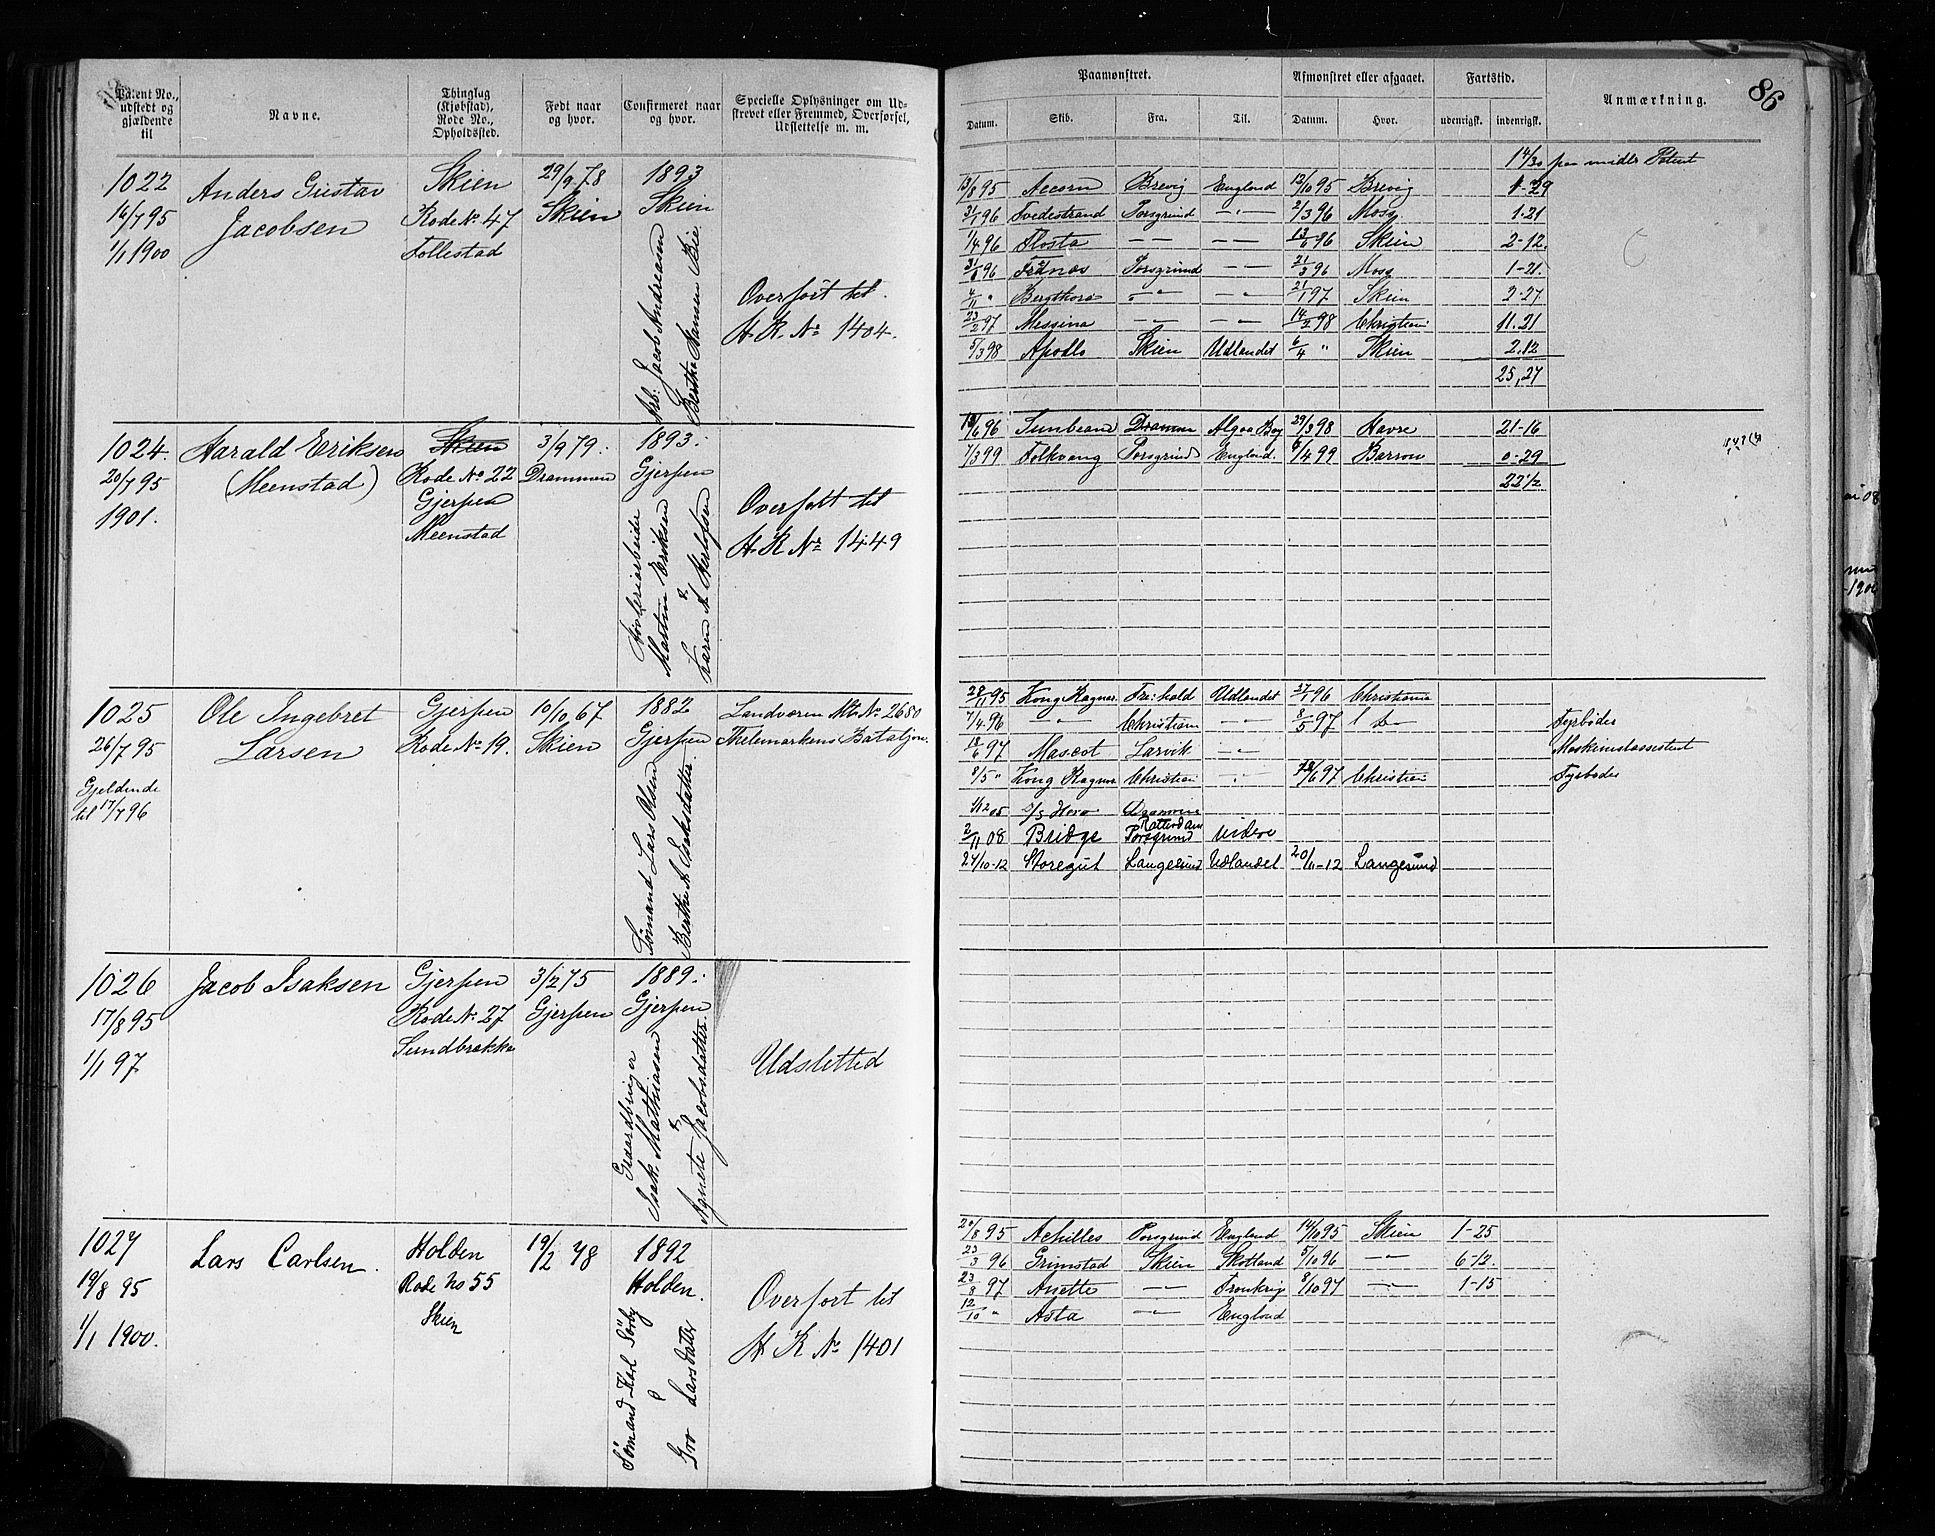 86
Patent No., udstedt og gjældende til
Navne.
Thinglag (Kjøbstad), Rode No., Opholdssted.
Født naar og hvor.
Confirmeret naar og hvor.
Specielle Oplysninger om Udskrevet eller Fremmed, Overførsel, Udslettelse m. m.
Paamønstret.
Afmønstret eller afgaaet.
Fartstid.
Anmærkning.
Datum.
Skib.
Fra.
Til.
Datum.
Hvor.
udenrigsk.
indenrigsk.
1022
16/7 95
1/1 1900
Anders Gustav
Jacobsen
Skien
Rode No 47
Follestad
29/9 78
Skien
1893
Skien
Arb: Jacob Andreasen
Berthe Hansen Bie
Overført til
H. R. No 1404.
14/30 paa midl. Patent
13/8 95 Accorn Brevig England 12/10 95 Brevig 1-29
3/1 96 Tvedestrand Porsgrund —"— 2/3 96 Moss 1-21
1/4 96 Flosta — — — — 13/6 96 Skien 2-12.
Porsgrund — — 21/3 96 Moss 1-21.
4/11 " Bergthora —"— —"— 21/1 97 Skien 2-27
23/2 97 Messina — — —"— 14/2 98 Christian: 11.21
5/3 98 Apollo Skien Udlandet 6/4 " Skien 2.12
25,27
1024.
20/7 95
1901.
Harald Eriksen
(Meenstad)
Skien
Rode No 22
Gjerpen
Meenstad
3/9 79.
Drammen
1893.
Gjerpen
Høvleriarbeider
Martin Eriksen
&
Karen A Herlofsen
Overført til
H. R. Nr 1449
18/6 96 Sunbeam Drammen Algoa Bay 29/3 98 Havre 21-16
7/3 99 Folkvang Porsgrund England. 6/4 99 Barrow 0-29
22 1/2
1025
26/7 95
Gjeldende
til 17/7 96
Ole Ingebret
Larsen
Gjerpen
Rode No 19.
10/10 67
Skien
1882
Gjerpen
Sømand Lars Olsen
Berthe A. Isaksdatter.
Landværen Mt. No 2680
Thelemarkens Bataljon.
28/11 95 Kong Ragnar Fre:hald Udlandet 27/1 96 Christiania
7/4 96 — — Christian — — 3/5 97 Fyrbøder
18/6 97 Mascot Larvik —"— Maskinistassistent
8/5 " Kong Ragnar Christian —"— 18/6 97 Christian Fyrbøder
1/12 05 S/S Hero Drammen
Rotterdam
2/11 08 Bridge Porsgrund videre
24/10-12 Storegut Langesund Udlandet 20/11-12 Langesund
1026
17/8 95
1/1 97
Jacob Isaksen
Gjerpen
Rode No 27
Sundbrække
3/2 75
Gjerpen
1889.
Gjerpen
Gaardbruger
Isak Mathiasen
&
Agnete Jacobsdatter.
Udslettet
1027
19/8 95
1/1 1900.
Lars Carlsen.
Holden
Rode No 55
Skien
19/2 78
1892
Holden.
Sømand Karl Sørby
&
Gro Larsdatter
Overført til
H R No 1401
20/8 95 Achilles Porsgrund England 14/10 95 Skien 1-25
23/3 96 Grimstad Skien Skotland 5/10 96 —"— 6-12.
23/8 97 Anette —"— Frankrig 8/10 97 —"— 1-15
12/10 " Asta —"— England